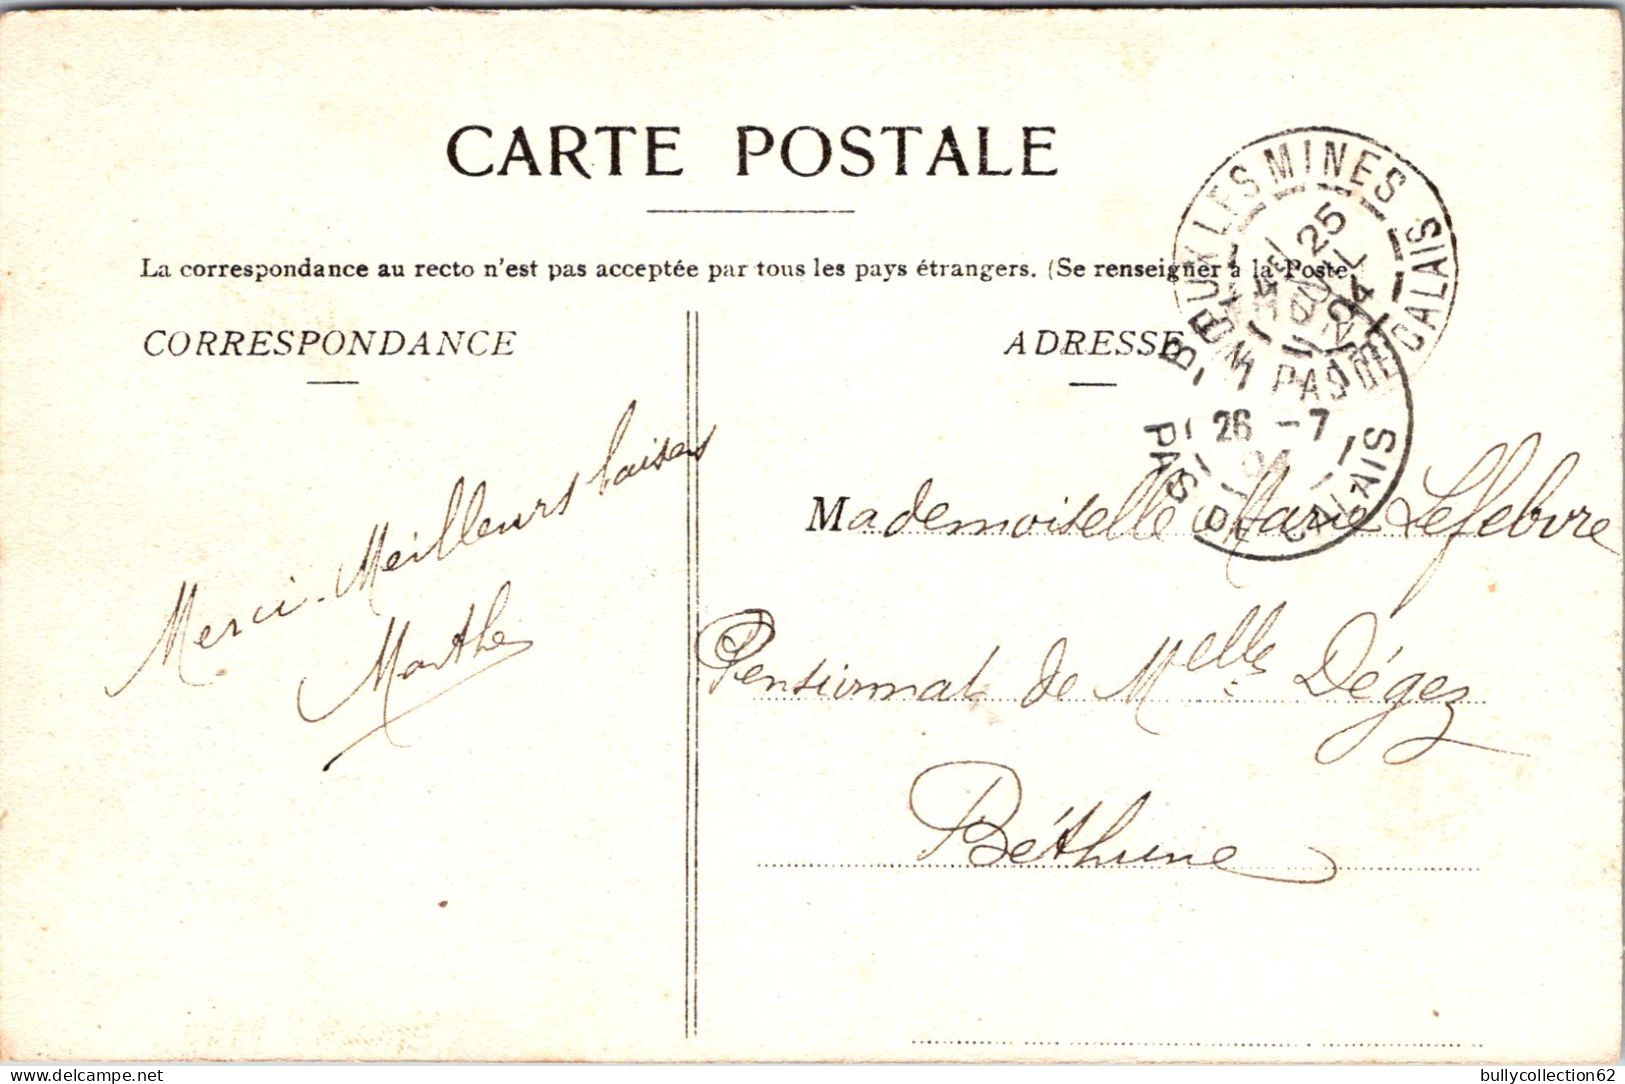 CARTE POSTALE
La correspondance au recto n'est pas acceptée par tous les pays étrangers. (Se renseigner à la Poste
CORRESPONDANCE
ADRESSE
LES MINES
PAS DE CALAIS
25
JUIL
04
26 - 7
04
PAS DE CALAIS
Merci. Meilleurs baisers
Marthe
Mademoiselle Marie Lefebvre
Pensionnat de Melle Dégez
Béthune
bullycollection62